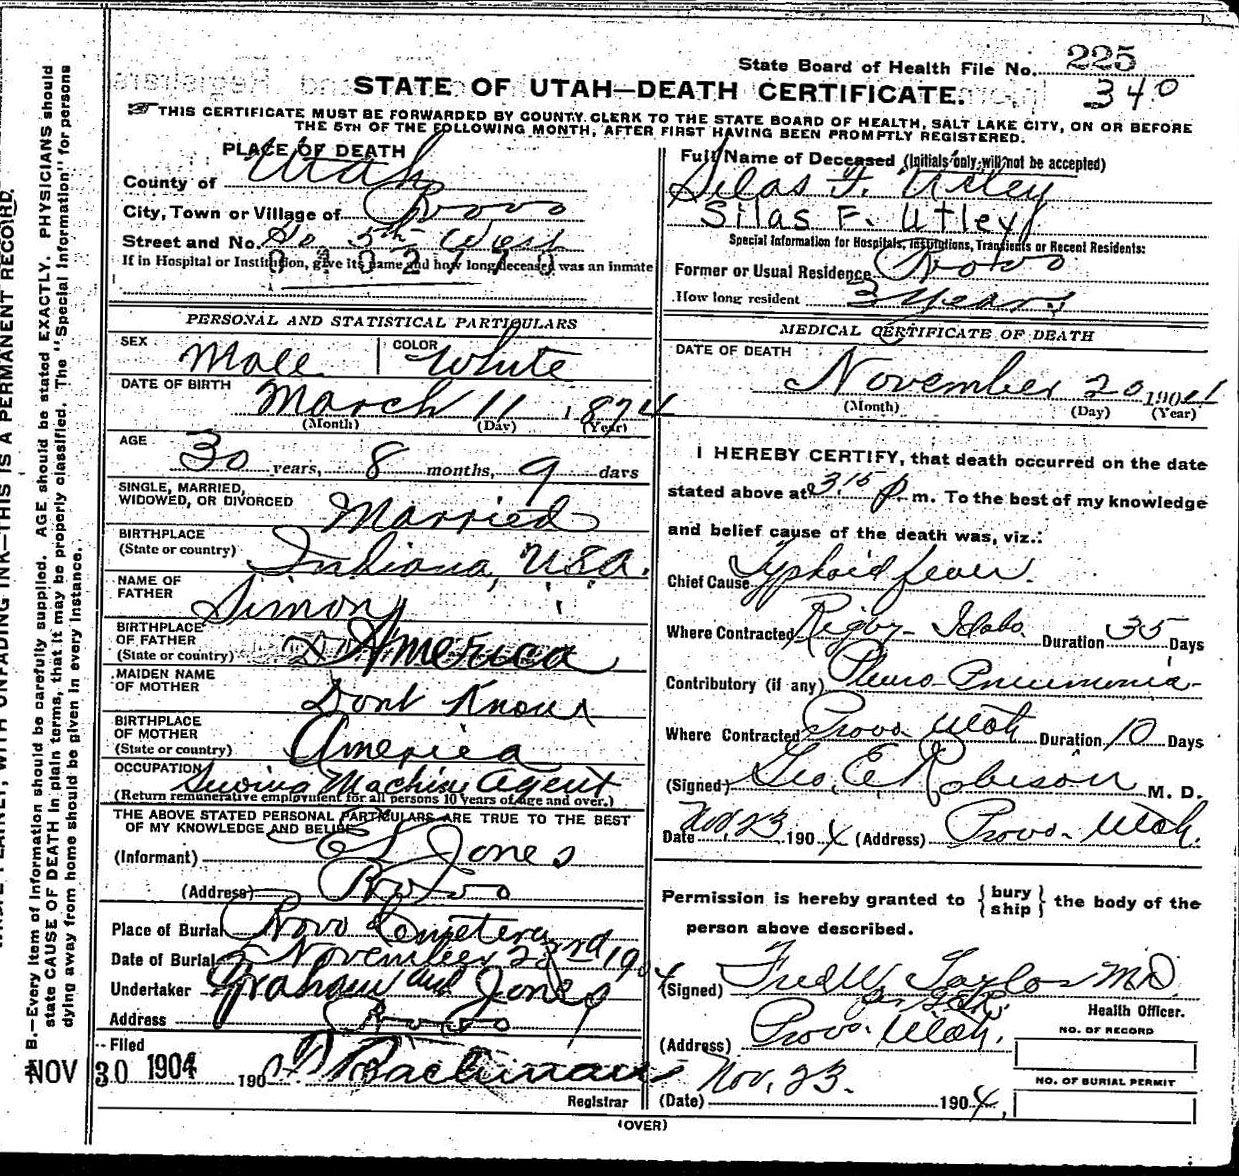 State Board of Health File No. 225
340
STATE OF UTAH—DEATH CERTIFICATE.
THIS CERTIFICATE MUST BE FORWARDED BY COUNTY CLERK TO THE STATE BOARD OF HEALTH, SALT LAKE CITY, ON OR BEFORE
THE 5TH OF THE FOLLOWING MONTH, AFTER FIRST HAVING BEEN PROMPTLY REGISTERED.
PLACE OF DEATH
County of Utah
City, Town or Village of Provo
Street and No. So 5th West
If in Hospital or Institution, give its name and how long deceased was an inmate
PERSONAL AND STATISTICAL PARTICULARS
SEX Male COLOR White
DATE OF BIRTH March 11, 1874
(Month) (Day) (Year)
AGE 30 years, 8 months, 9 days
SINGLE, MARRIED,
WIDOWED, OR DIVORCED Married
BIRTHPLACE
(State or country) Indiana, U.S.A.
NAME OF
FATHER Simon
BIRTHPLACE
OF FATHER
(State or country) America
MAIDEN NAME
OF MOTHER Dont Know
BIRTHPLACE
OF MOTHER
(State or country) America
OCCUPATION Sewing Machine Agent
(Return remunerative employment for all persons 10 years of age and over.)
THE ABOVE STATED PERSONAL PARTICULARS ARE TRUE TO THE BEST
OF MY KNOWLEDGE AND BELIEF
(Informant) Jones
(Address) Provo
Place of Burial Provo Cemetery
Date of Burial November 23rd 1904
Undertaker Graham and Jones
Address Provo
Filed
NOV 30 1904 190
Registrar
(OVER)
Full Name of Deceased (Initials only will not be accepted)
Silas F. Utley
Silas F. Utley
Special Information for Hospitals, Institutions, Transients or Recent Residents:
Former or Usual Residence Provo
How long resident 3 years
MEDICAL CERTIFICATE OF DEATH
DATE OF DEATH
November 20 1904
(Month) (Day) (Year)
I HEREBY CERTIFY, that death occurred on the date
stated above at 3.15 P. m. To the best of my knowledge
and belief cause of the death was, viz.:
Chief Cause Typhoid fever.
Where Contracted Rigby- Idaho. Duration 35 Days
Contributory (if any) Pleuro-Pneumonia-
Where Contracted Provo Utah Duration 10 Days
(Signed) Geo. E. Robison M. D.
Date Nov. 23 1904 (Address) Provo- Utah.
Permission is hereby granted to {bury
ship} the body of the
person above described.
(Signed) Fred W Taylor MD.
Health Officer.
(Address) Provo. Utah.
NO. OF RECORD
NO. OF BURIAL PERMIT
Nov. 23.
(Date) 1904,
B.—Every item of information should be carefully supplied. AGE should be stated EXACTLY. PHYSICIANS should
state CAUSE OF DEATH in plain terms, that it may be properly classified. The "Special Information" for persons
dying away from home should be given in every instance.
WITH UNFADING INK—THIS IS A PERMANENT RECORD.